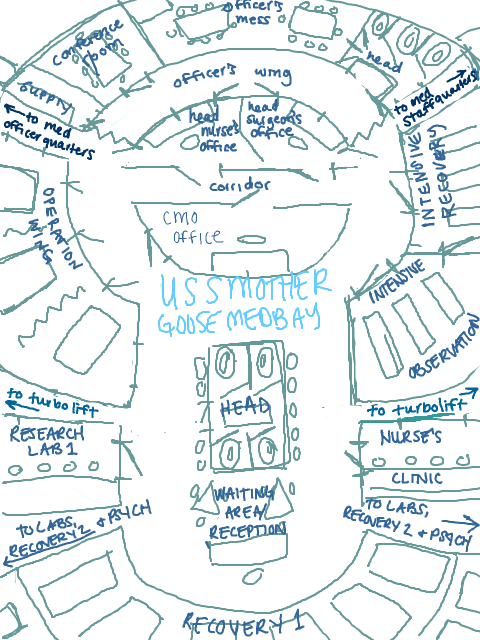 OFFICER'S
MESS
CONFERENCE
ROOM
head
OFFICER'S WING
SUPPLY
to med
staff quarters
← to med
officer quarters
head
nurse's
office
head
surgeon's
office
INTENSIVE
RECOVERY
corridor
OPERATION
WING
CMO
OFFICE
USS MOTHER
GOOSE MEDBAY
INTENSIVE
OBSERVATION
to turbolift
to turbolift
HEAD
RESEARCH
LAB 1
NURSE'S
CLINIC
WAITING
AREA
RECEPTION
TO LABS,
RECOVERY 2 & PSYCH
TO LABS,
RECOVERY 2 & PSYCH
RECOVERY 1